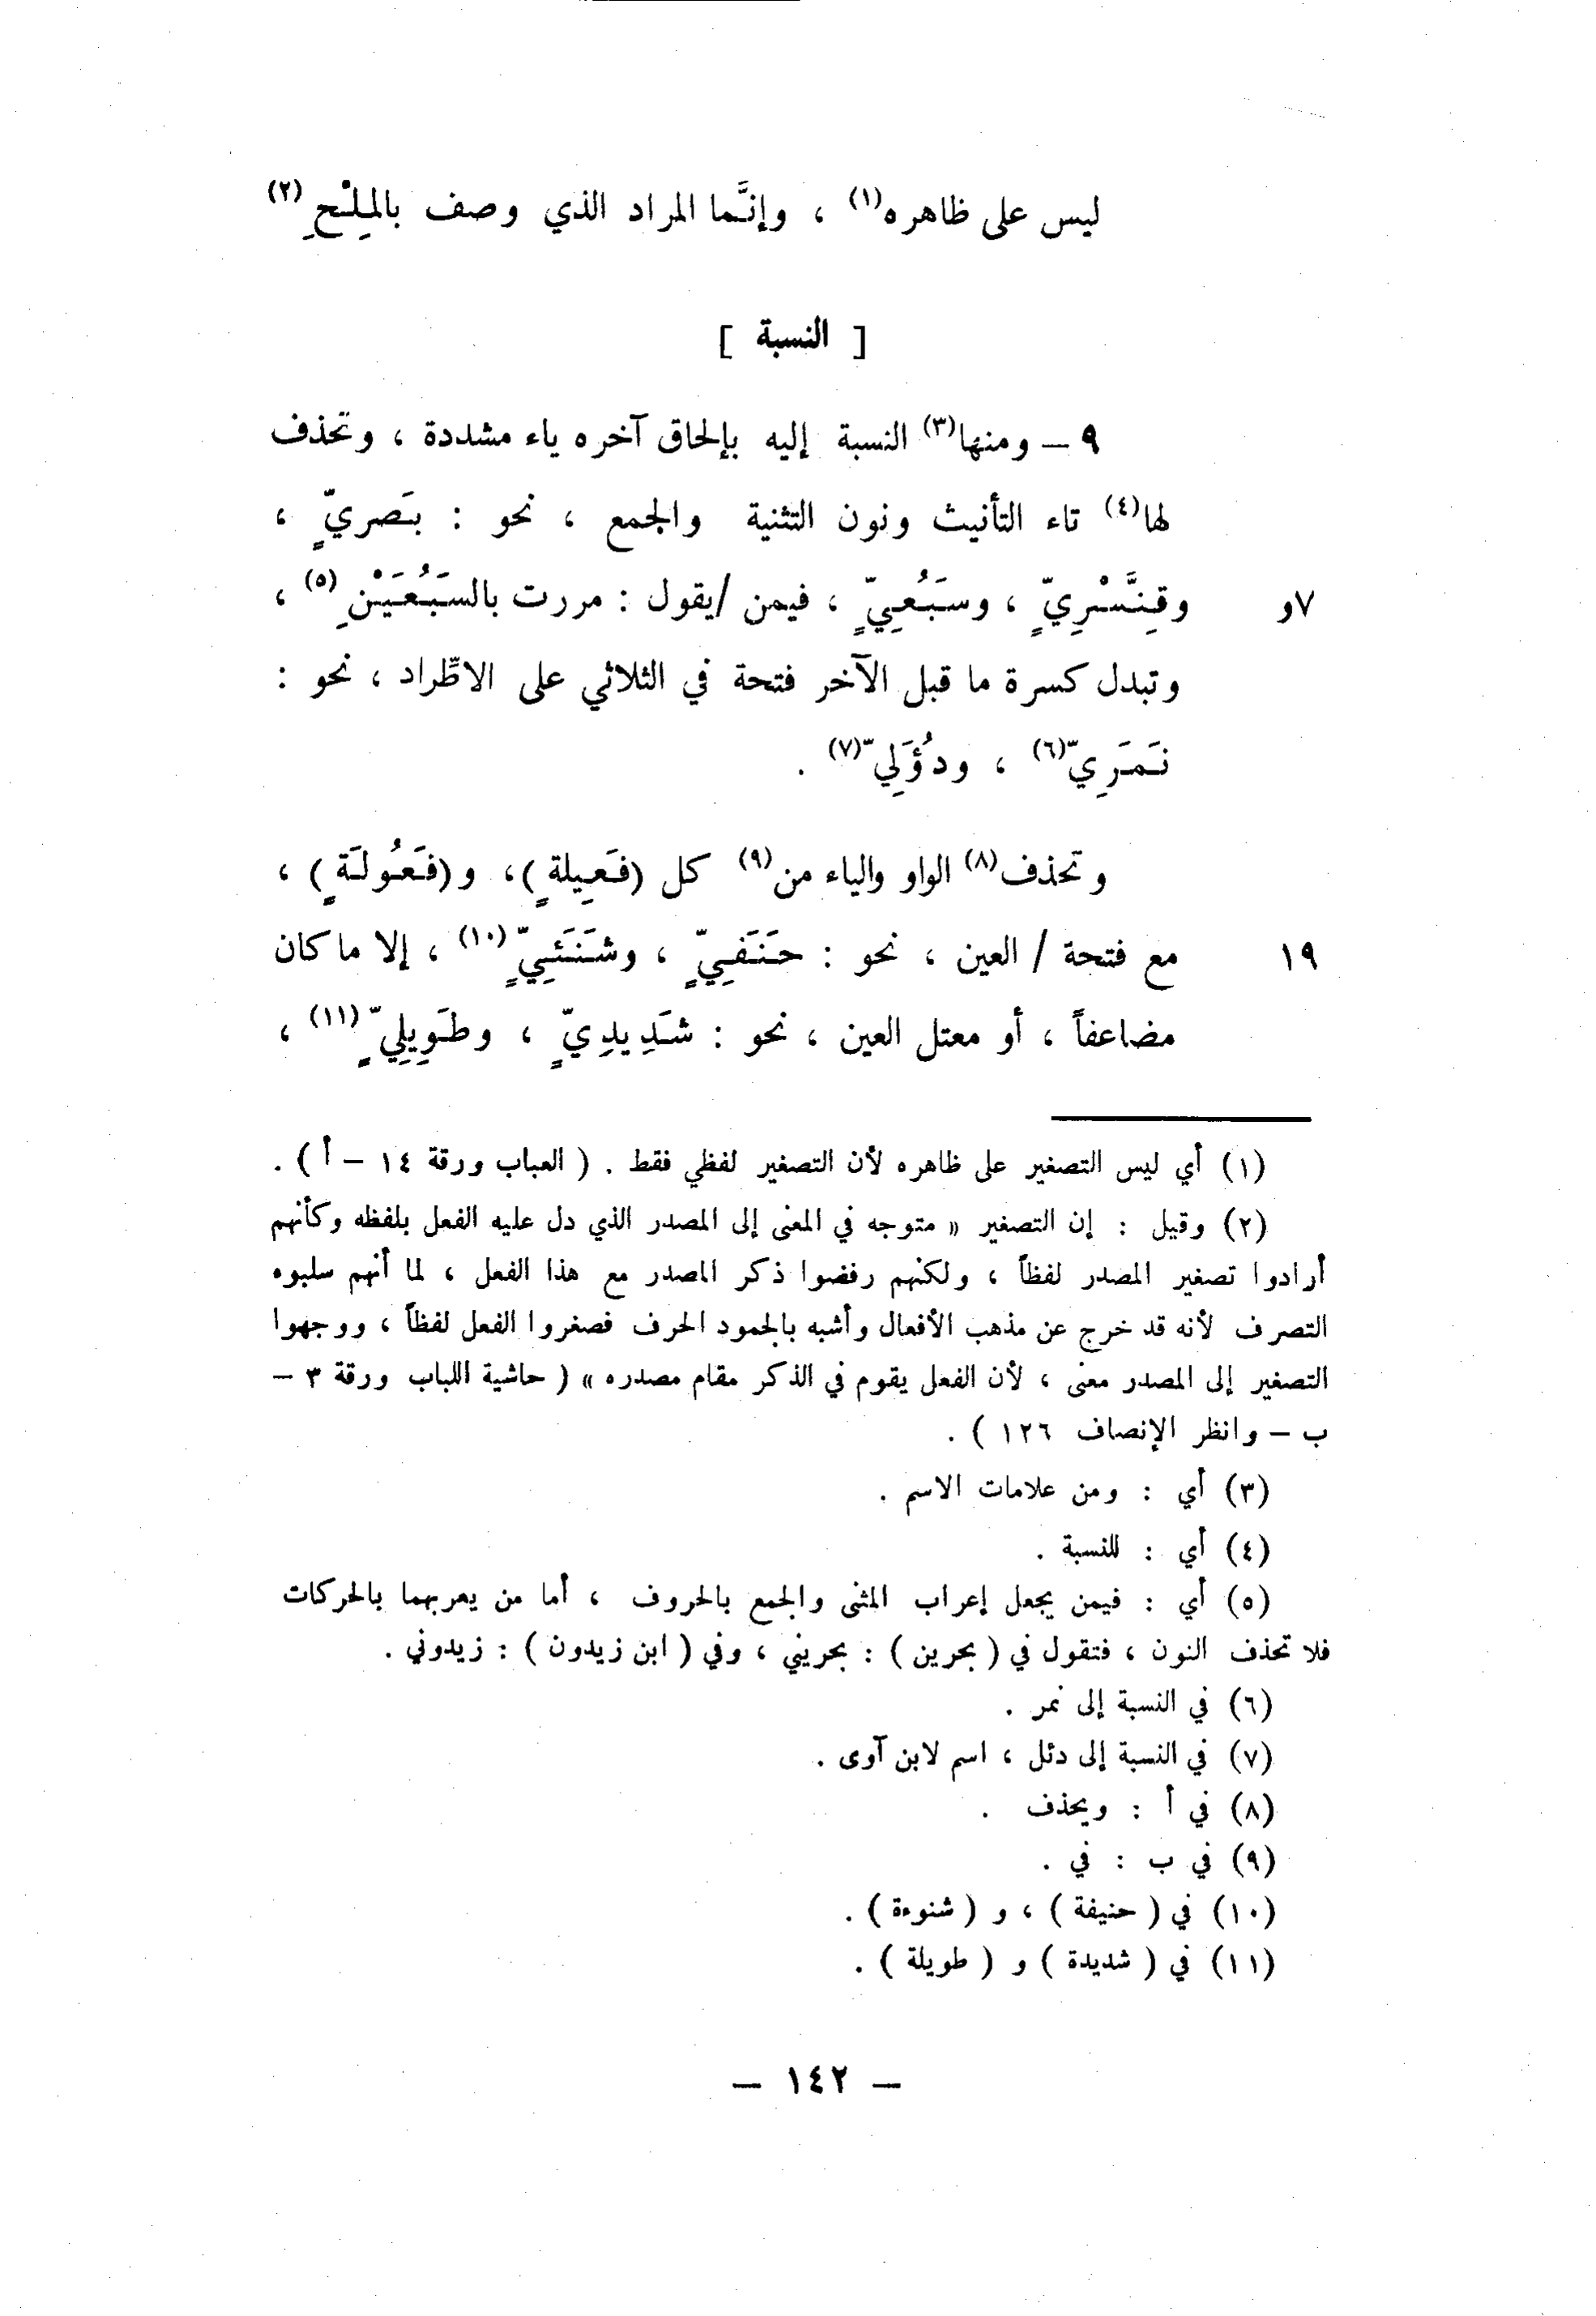 ليس على ظاهره(١) ، وإنَّما المراد الذي وصف بالمِلْحِ(٢)
[ النسبة ]
٩ – ومنها(٣) النسبة إليه بإلحاق آخره ياء مشددة ، وتحذف
لها(٤) تاء التأنيث ونون التثنية والجمع ، نحو : بَصريٍّ ،
٧و وقِنَّسْرِيٍّ ، وسَبُعِيٍّ ، فيمن /يقول : مررت بالسَبُعَيْنِ(٥) ،
وتبدل كسرة ما قبل الآخر فتحة في الثلاثي على الاطِّراد ، نحو :
نَمَرِيّ(٦) ، ودُؤَلِيّ(٧) .
وتحذف(٨) الواو والياء من(٩) كل (فَعِيلةٍ)، و(فَعُولَةٍ) ،
١٩ مع فتحة / العين ، نحو : حَنَفِيٍّ ، وشَنَئِيٍّ(١٠) ، إلا ما كان
مضاعفاً ، أو معتل العين ، نحو : شَدِيدِيٍّ ، وطَوِيلِيٍّ(١١) ،
(١) أي ليس التصغير على ظاهره لأن التصغير لفظي فقط . ( العباب ورقة ١٤ – أ ) .
(٢) وقيل : إن التصغير « متوجه في المعنى إلى المصدر الذي دل عليه الفعل بلفظه وكأنهم
أرادوا تصغير المصدر لفظاً ، ولكنهم رفضوا ذكر المصدر مع هذا الفعل ، لما أنهم سلبوه
التصرف لأنه قد خرج عن مذهب الأفعال وأشبه بالجمود الحرف فصغروا الفعل لفظاً ، ووجهوا
التصغير إلى المصدر معنى ، لأن الفعل يقوم في الذكر مقام مصدره » ( حاشية اللباب ورقة ٣ –
ب – وانظر الإنصاف ١٢٦ ) .
(٣) أي : ومن علامات الاسم .
(٤) أي : للنسبة .
(٥) أي : فيمن يجعل إعراب المثنى والجمع بالحروف ، أما من يعربهما بالحركات
فلا تحذف النون ، فتقول في ( بحرين ) : بحريني ، وفي ( ابن زيدون ) : زيدوني .
(٦) في النسبة إلى نمر .
(٧) في النسبة إلى دئل ، اسم لابن آوى .
(٨) في أ : ويحذف .
(٩) في ب : في .
(١٠) في ( حنيفة ) ، و ( شنوءة ) .
(١١) في ( شديدة ) و ( طويلة ) .
– ١٤٢ –